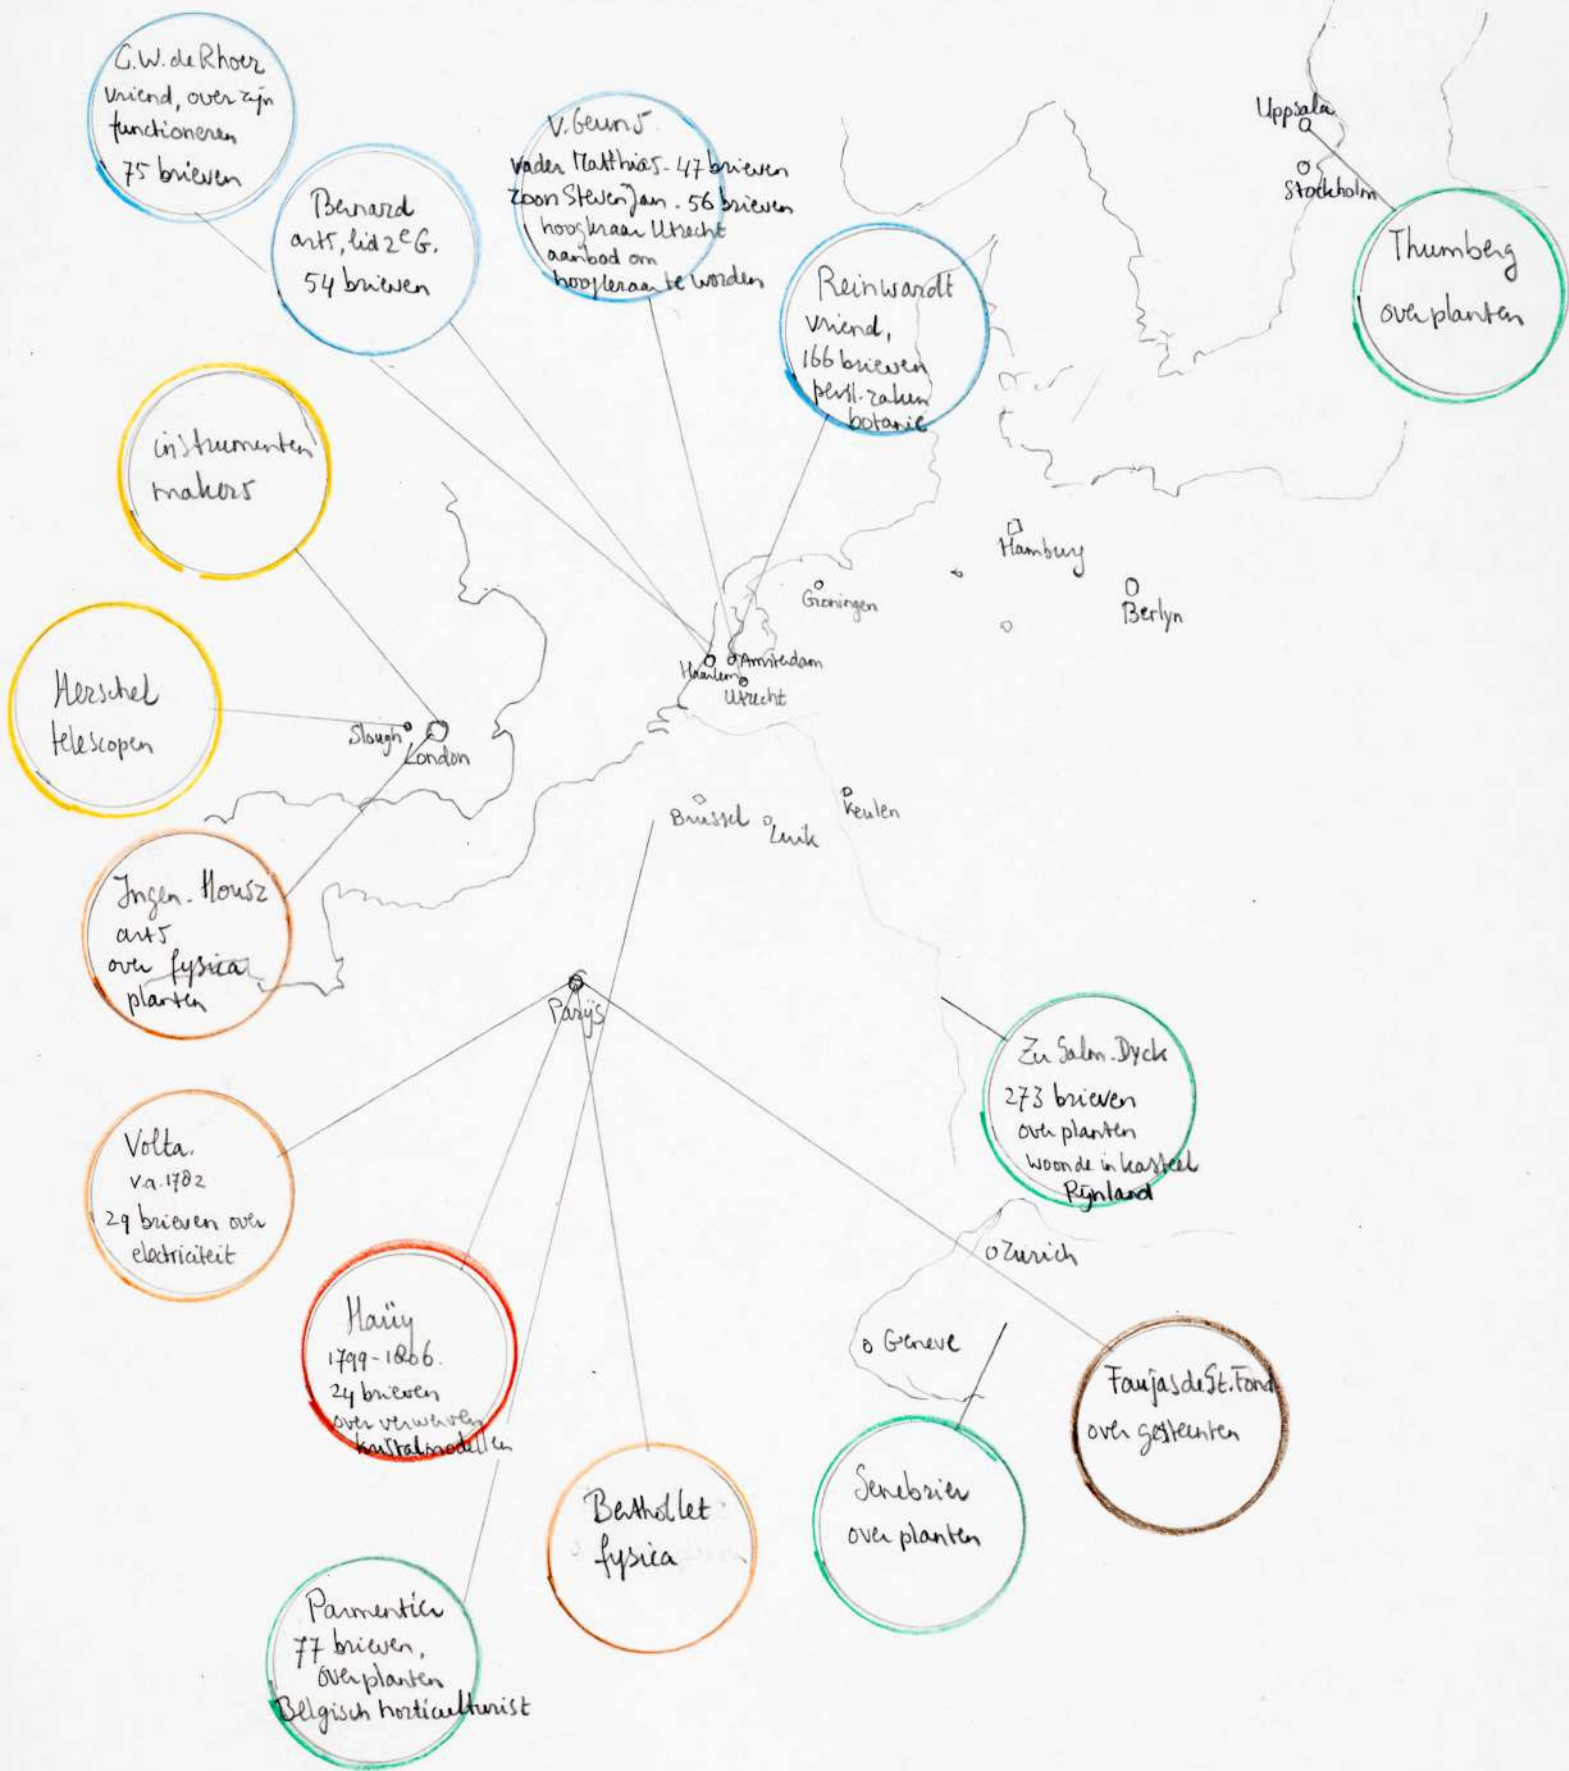 C.W. de Rhoer
vriend, over zijn
functioneren
75 brieven
Bernard
arts, lid 2e G.
54 brieven
V. Geuns
vader Matthias - 47 brieven
zoon Steven Jan - 56 brieven
hoogleraar Utrecht
aanbod om
hoogleraar te worden
Reinwardt
vriend,
166 brieven
persl. zaken
botanie
Uppsala
Stockholm
Thumberg
over planten
instrumenten
makers
Hamburg
Berlyn
Groningen
Haarlem
Amsterdam
Utrecht
Herschel
telescopen
Slough
London
Brussel
Luik
Keulen
Ingen-Housz
arts
over fysica
planten
Parijs
Zu Salm-Dyck
273 brieven
over planten
woonde in kasteel
Rijnland
Volta.
v.a. 1782
29 brieven over
electriciteit
Zurich
Haüy
1799-1806.
24 brieven
over verwerven
kristalmodellen
Geneve
Faujas de St. Fond
over gesteenten
Berthollet
fysica
Senebrier
over planten
Parmentier
77 brieven,
over planten
Belgisch horticulturist